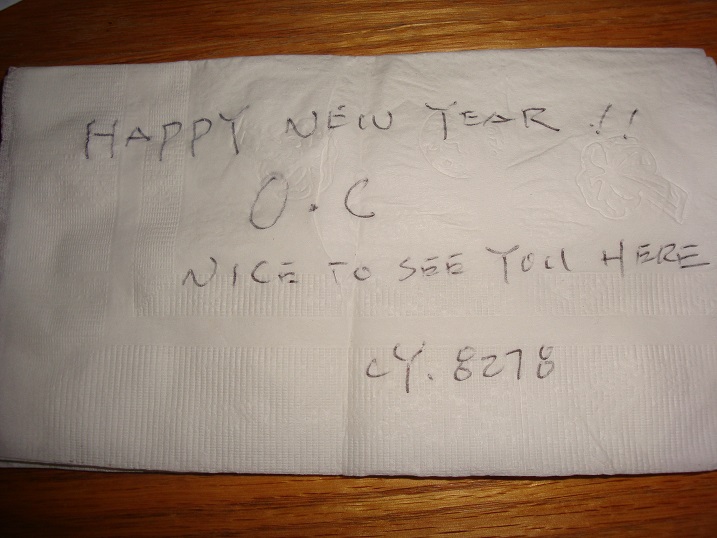 HAPPY NEW YEAR !!
O.C
NICE TO SEE YOU HERE
CY. 8278